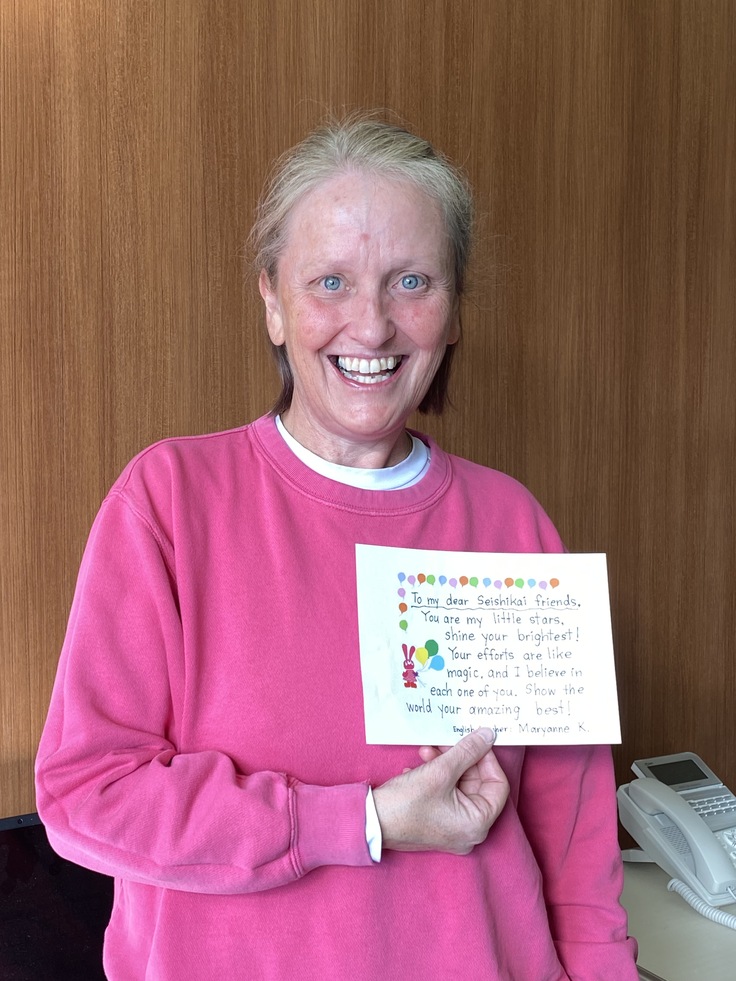 To my dear Seishikai friends.
You are my little stars,
shine your brightest!
Your efforts are like
magic, and I believe in
each one of you. Show the
world your amazing best!
English her: Maryanne K.